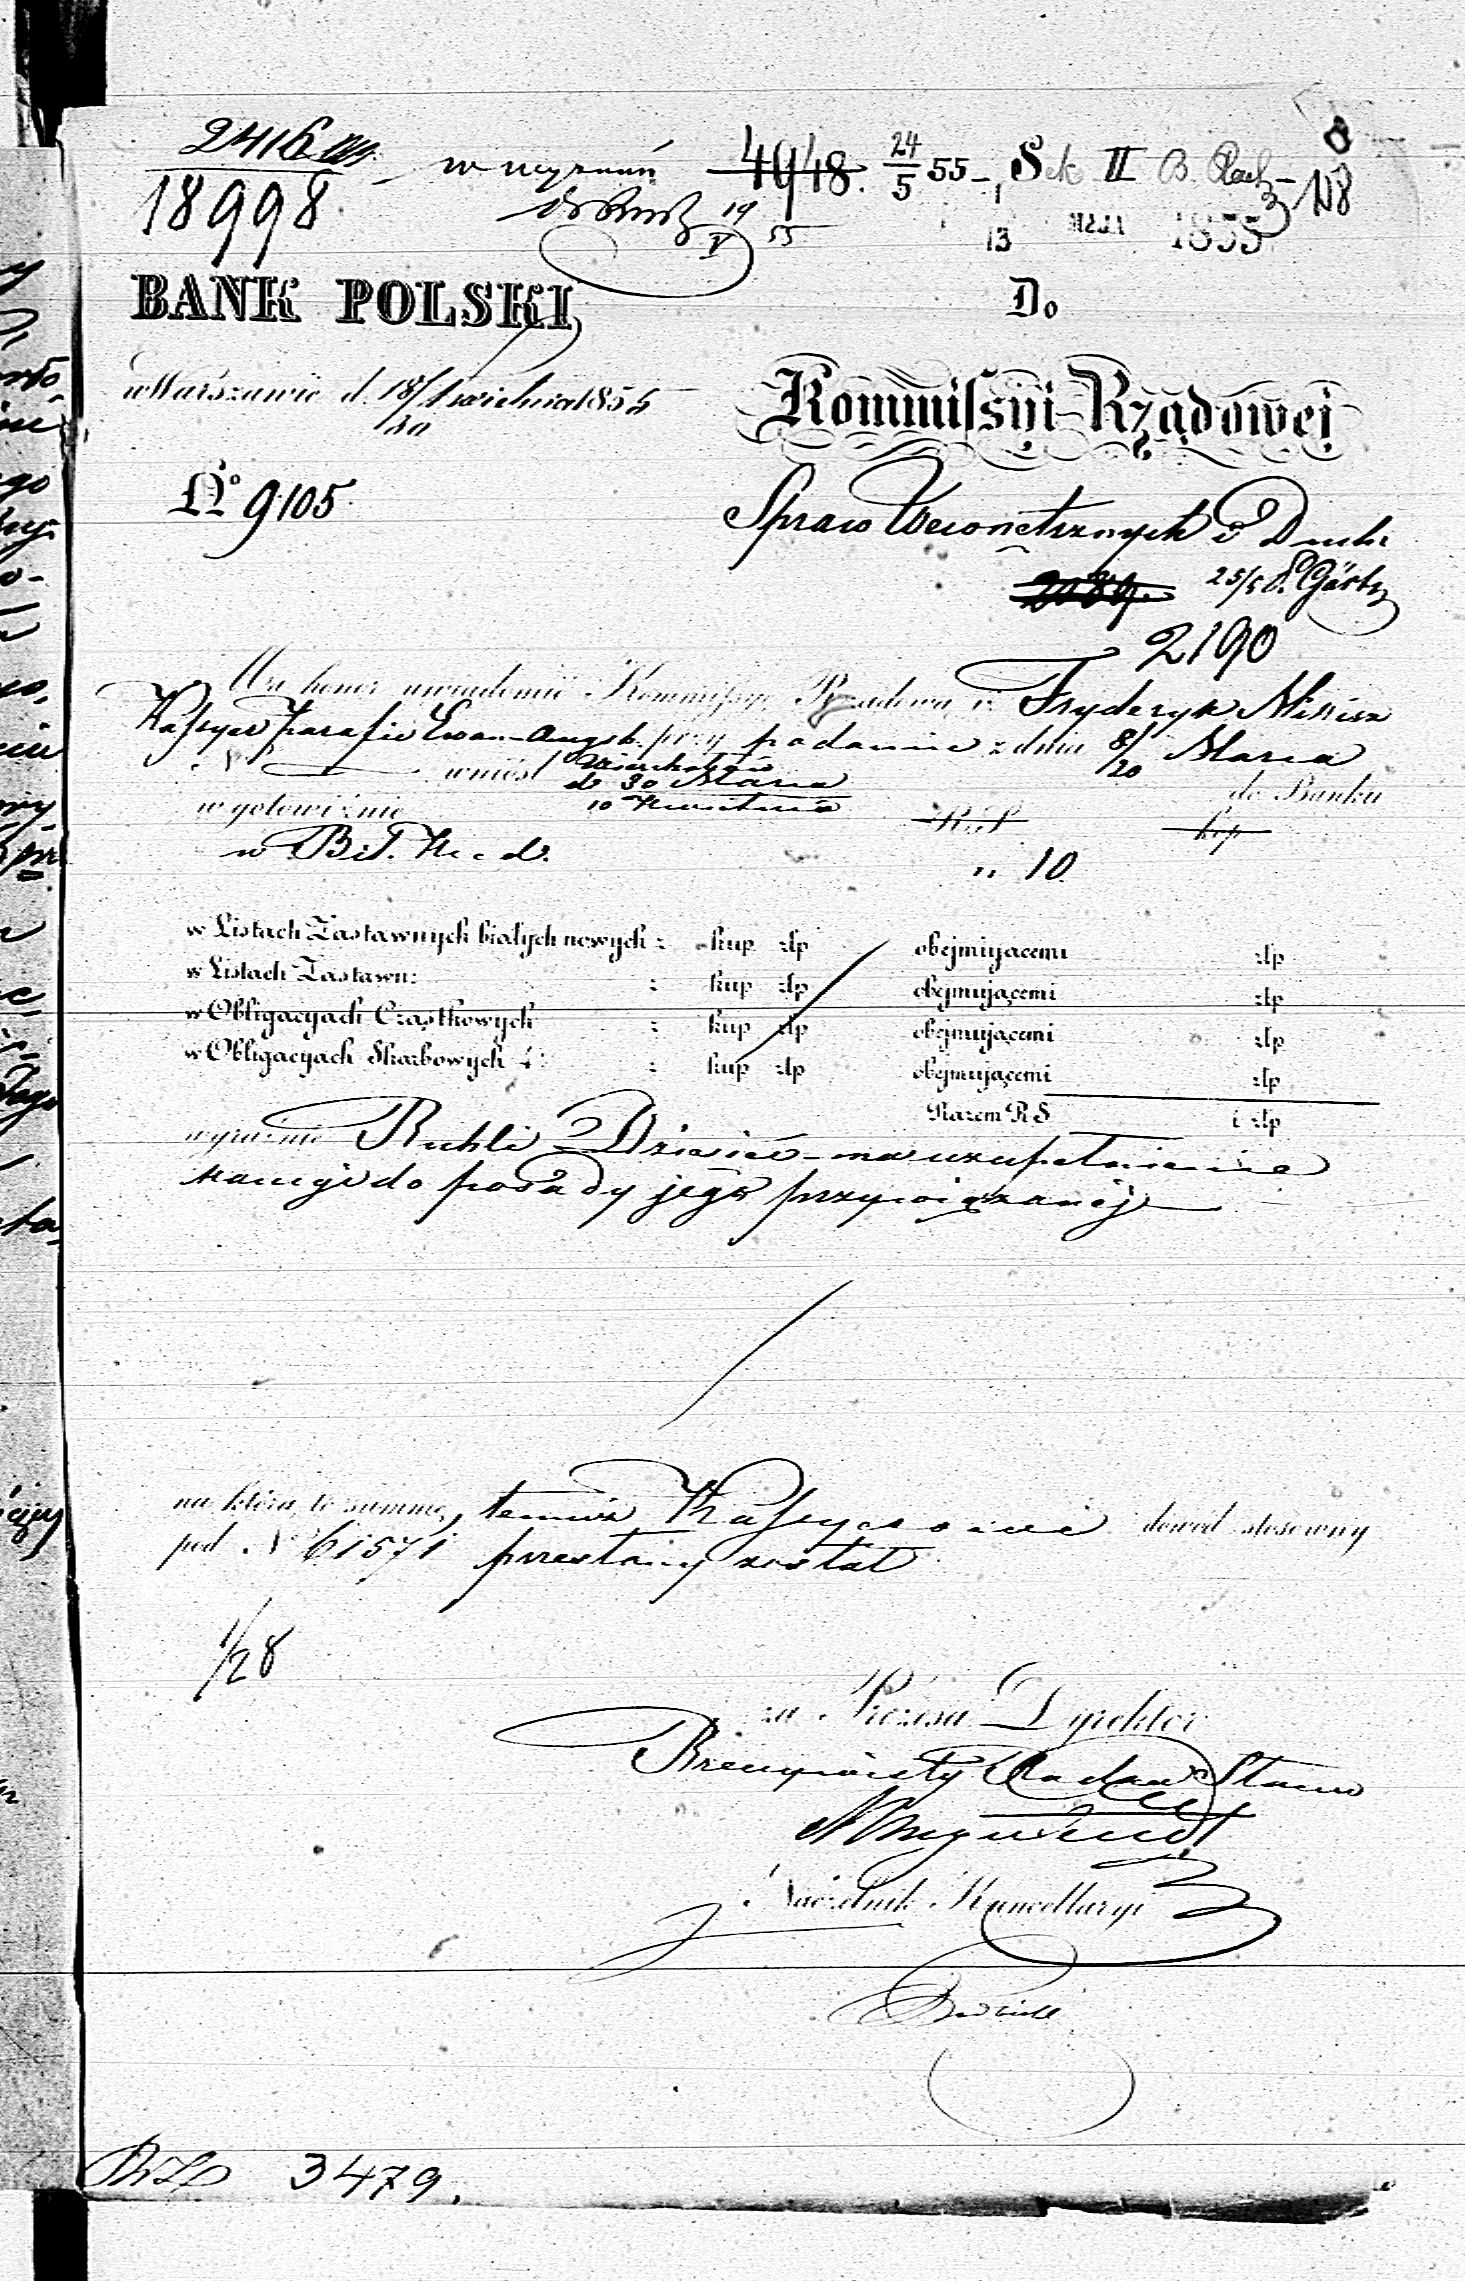 2416
18998
w wyznań 4948. 24/5 55 Sek II B. Rach
19/V 55
118
13 1855
BANK POLSKI
Do
w Warszawie d. 18/30 Kwietnia 1855
Kommissyi Rządowej
No 9105
Spraw Wewnętrznych i Duch:
25/5
2190
Ma honor uwiadomić Kommissyę Rządową, iż Fryderyk
Kassyer Parafii Ewan-Augsb. przy podaniu z dnia 8/20 Marca
No wniósł
d 30 Marca
10 Kwietnia
do Banku
w gotowiźnie RS kop
w Bil. Kred. " 10
w Listach Zastawnych białych nowych : kup złp obejmującemi złp
w Listach Zastawn: : kup złp obejmującemi złp
w Obligacyach Cząstkowych : kup złp obejmującemi złp
w Obligacyach Skarbowych 4: : kup złp obejmującemi złp
Razem RS i złp
wyraźnie Rubli Dziesięć na uzupełnienie
kaucyi do posady jego przywiązanéj
na którą to summę, temuż Kassyerowi dowód stosowny
pod No 61571 przesłany został
1/28
za Prezesa Dyrektor
Rzeczywisty Radca Stanu
Naczelnik Kancellaryi
3479.